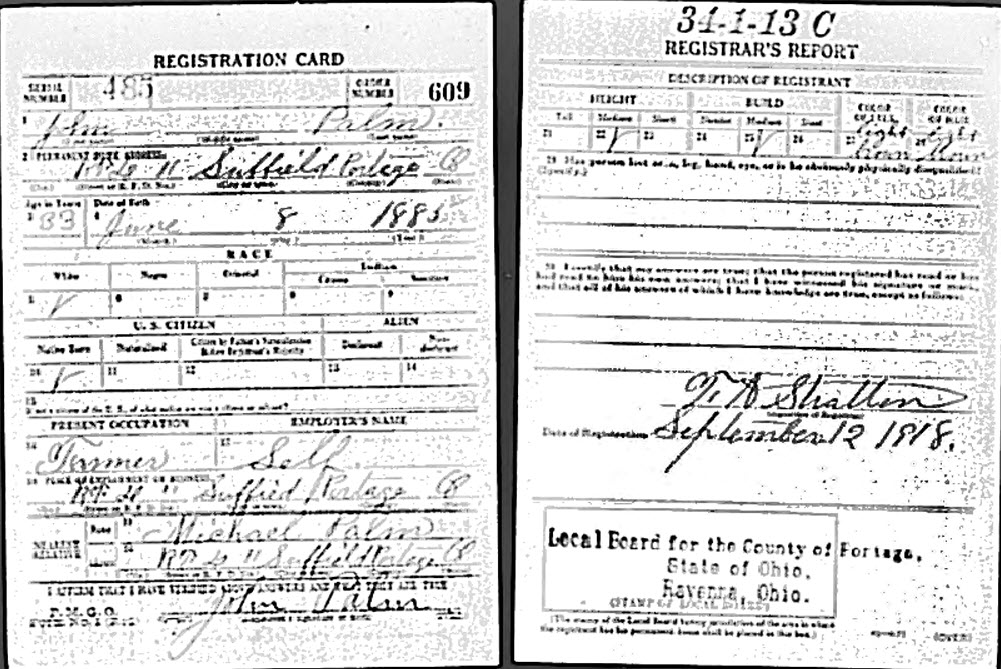 REGISTRATION CARD
SERIAL NUMBER 485 ORDER NUMBER 609
1 John Palm.
2 PERMANENT HOME ADDRESS:
Suffield Portage O
Age in Years Date of Birth
3 33 4 June 8 1885
(Month.) (Day.) (Year.)
RACE
White Negro Oriental Indian
Citizen Noncitizen
5 6 7 8 9
U. S. CITIZEN ALIEN
Native Born Naturalized Citizen by Father's Naturalization Before Registrant's Majority Declarant Non-declarant
10 11 12 13 14
15
If not a citizen of the U. S., of what nation are you a citizen or subject?
PRESENT OCCUPATION EMPLOYER'S NAME
Farmer Self
PLACE OF EMPLOYMENT OR BUSINESS:
Suffied Portage O
NEAREST RELATIVE Name Michael Palm
Suffield Portage O
I AFFIRM THAT I HAVE VERIFIED ABOVE ANSWERS AND THAT THEY ARE TRUE
P. M. G. O.
John Palm
34-1-13 C
REGISTRAR'S REPORT
DESCRIPTION OF REGISTRANT
HEIGHT BUILD COLOR OF EYES COLOR OF HAIR
Tall Medium Short Slender Medium Stout
21 22 23 24 25 26 27 28
light light
29 Has person lost arm, leg, hand, eye, or is he obviously physically disqualified?
(Specify.)
30 I certify that my answers are true; that the person registered has read or has
had read to him his own answers; that I have witnessed his signature or mark,
and that all of his answers of which I have knowledge are true, except as follows:
Date of Registration September 12 1918.
Local Board for the County of Portage,
State of Ohio,
Ravenna, Ohio.
(STAMP OF LOCAL BOARD)
(The stamp of the Local Board having jurisdiction of the area in which
the registrant has his permanent home shall be placed in this box.)
(OVER)